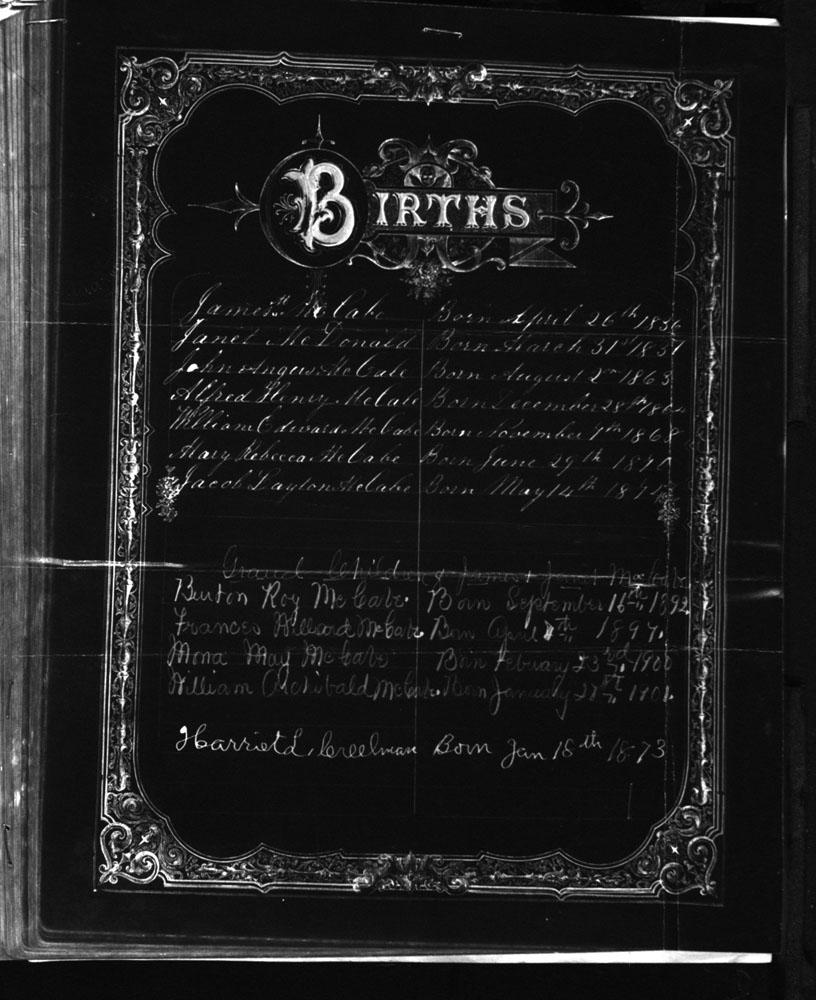 BIRTHS
James McCabe Born April 26th 1836
Janet McDonald Born March 31st 1837
John Angus McCabe Born August 2nd 1863
Alfred Henry McCabe Born December 28th
William Edward McCabe Born November 7th 1868
Mary Rebecca McCabe Born June 29th 1871
Jacob Layton McCabe Born May 14th
Grand Children of James & Janet McCabe
Burton Roy McCabe Born September 16th 1892
Frances Willard McCabe Born April 1897.
Mona May McCabe Born February 23rd 1900
William Archibald McCabe. Born January
Harriet L. Creelman Born Jan 18th 1873